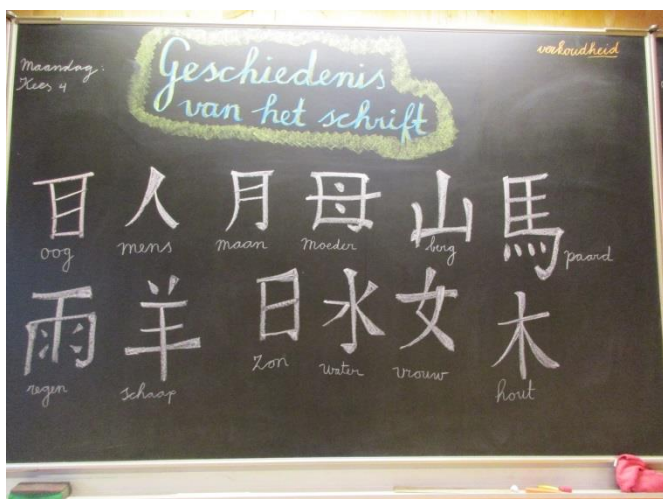 Maandag:
Kees 4
Geschiedenis
van het schrift
verkoudheid
目 人 月 母 山 馬
oog mens maan Moeder berg paard
雨 羊 日 水 女 木
regen schaap Zon water vrouw hout